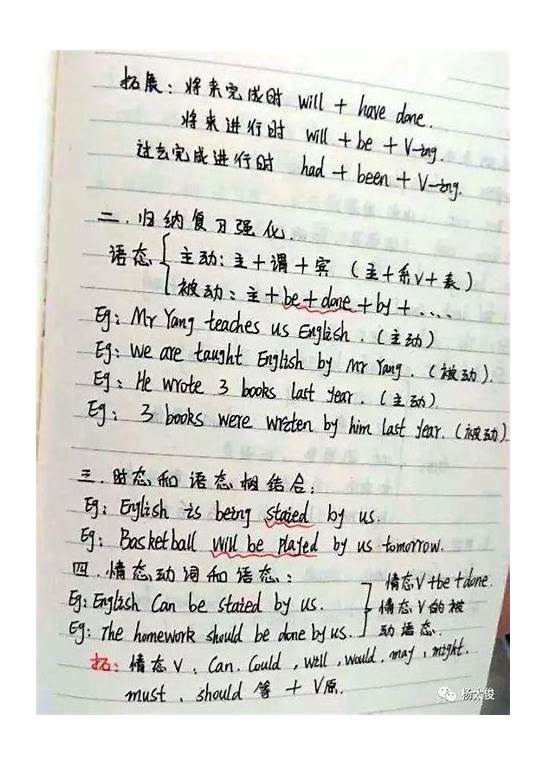 拓展：将来完成时 will + have done.
将来进行时 will + be + V-ing.
过去完成进行时 had + been + V-ing.
二．归纳复习强化．
语态 { 主动：主+谓+宾 （主+系V+表）
被动：主+be+done+by+....
Eg: Mr Yang teaches us English. （主动）
Eg: We are taught English by Mr Yang. （被动）.
Eg: He wrote 3 books last year. （主动）
Eg: 3 books were written by him last year. （被动）
三．时态和语态相结合：
Eg: English is being stated by us.
Eg: Basketball will be played by us tomorrow.
四．情态动词和语态：
Eg: English Can be stated by us.
Eg: The homework should be done by us.
情态V+be+done.
情态V的被
动语态.
拓：情态V、Can. Could, will, would, may, might.
must、should 等 + V原.
杨大俊